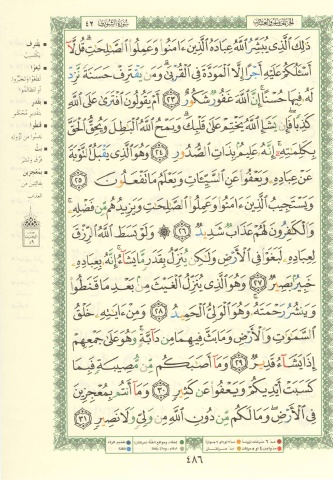 سورة الشورى ٤٢
ذَٰلِكَ ٱلَّذِى يُبَشِّرُ ٱللَّهُ عِبَادَهُ ٱلَّذِينَ ءَامَنُوا۟ وَعَمِلُوا۟ ٱلصَّٰلِحَٰتِ ۗ قُل لَّآ
أَسْـَٔلُكُمْ عَلَيْهِ أَجْرًا إِلَّا ٱلْمَوَدَّةَ فِى ٱلْقُرْبَىٰ ۗ وَمَن يَقْتَرِفْ حَسَنَةً نَّزِدْ
لَهُۥ فِيهَا حُسْنًا ۚ إِنَّ ٱللَّهَ غَفُورٌ شَكُورٌ ٢٣ أَمْ يَقُولُونَ ٱفْتَرَىٰ عَلَى ٱللَّهِ
كَذِبًا ۖ فَإِن يَشَإِ ٱللَّهُ يَخْتِمْ عَلَىٰ قَلْبِكَ ۗ وَيَمْحُ ٱللَّهُ ٱلْبَٰطِلَ وَيُحِقُّ ٱلْحَقَّ
بِكَلِمَٰتِهِۦٓ ۚ إِنَّهُۥ عَلِيمٌۢ بِذَاتِ ٱلصُّدُورِ ٢٤ وَهُوَ ٱلَّذِى يَقْبَلُ ٱلتَّوْبَةَ
عَنْ عِبَادِهِۦ وَيَعْفُوا۟ عَنِ ٱلسَّيِّـَٔاتِ وَيَعْلَمُ مَا تَفْعَلُونَ ٢٥
وَيَسْتَجِيبُ ٱلَّذِينَ ءَامَنُوا۟ وَعَمِلُوا۟ ٱلصَّٰلِحَٰتِ وَيَزِيدُهُم مِّن فَضْلِهِۦ ۚ
وَٱلْكَٰفِرُونَ لَهُمْ عَذَابٌ شَدِيدٌ ٢٦ ۞ وَلَوْ بَسَطَ ٱللَّهُ ٱلرِّزْقَ
لِعِبَادِهِۦ لَبَغَوْا۟ فِى ٱلْأَرْضِ وَلَٰكِن يُنَزِّلُ بِقَدَرٍ مَّا يَشَآءُ ۚ إِنَّهُۥ بِعِبَادِهِۦ
خَبِيرٌۢ بَصِيرٌ ٢٧ وَهُوَ ٱلَّذِى يُنَزِّلُ ٱلْغَيْثَ مِنۢ بَعْدِ مَا قَنَطُوا۟
وَيَنشُرُ رَحْمَتَهُۥ ۚ وَهُوَ ٱلْوَلِىُّ ٱلْحَمِيدُ ٢٨ وَمِنْ ءَايَٰتِهِۦ خَلْقُ
ٱلسَّمَٰوَٰتِ وَٱلْأَرْضِ وَمَا بَثَّ فِيهِمَا مِن دَآبَّةٍ ۚ وَهُوَ عَلَىٰ جَمْعِهِمْ
إِذَا يَشَآءُ قَدِيرٌ ٢٩ وَمَآ أَصَٰبَكُم مِّن مُّصِيبَةٍ فَبِمَا
كَسَبَتْ أَيْدِيكُمْ وَيَعْفُوا۟ عَن كَثِيرٍ ٣٠ وَمَآ أَنتُم بِمُعْجِزِينَ
فِى ٱلْأَرْضِ ۖ وَمَا لَكُم مِّن دُونِ ٱللَّهِ مِن وَلِىٍّ وَلَا نَصِيرٍ ٣١
٤٨٦